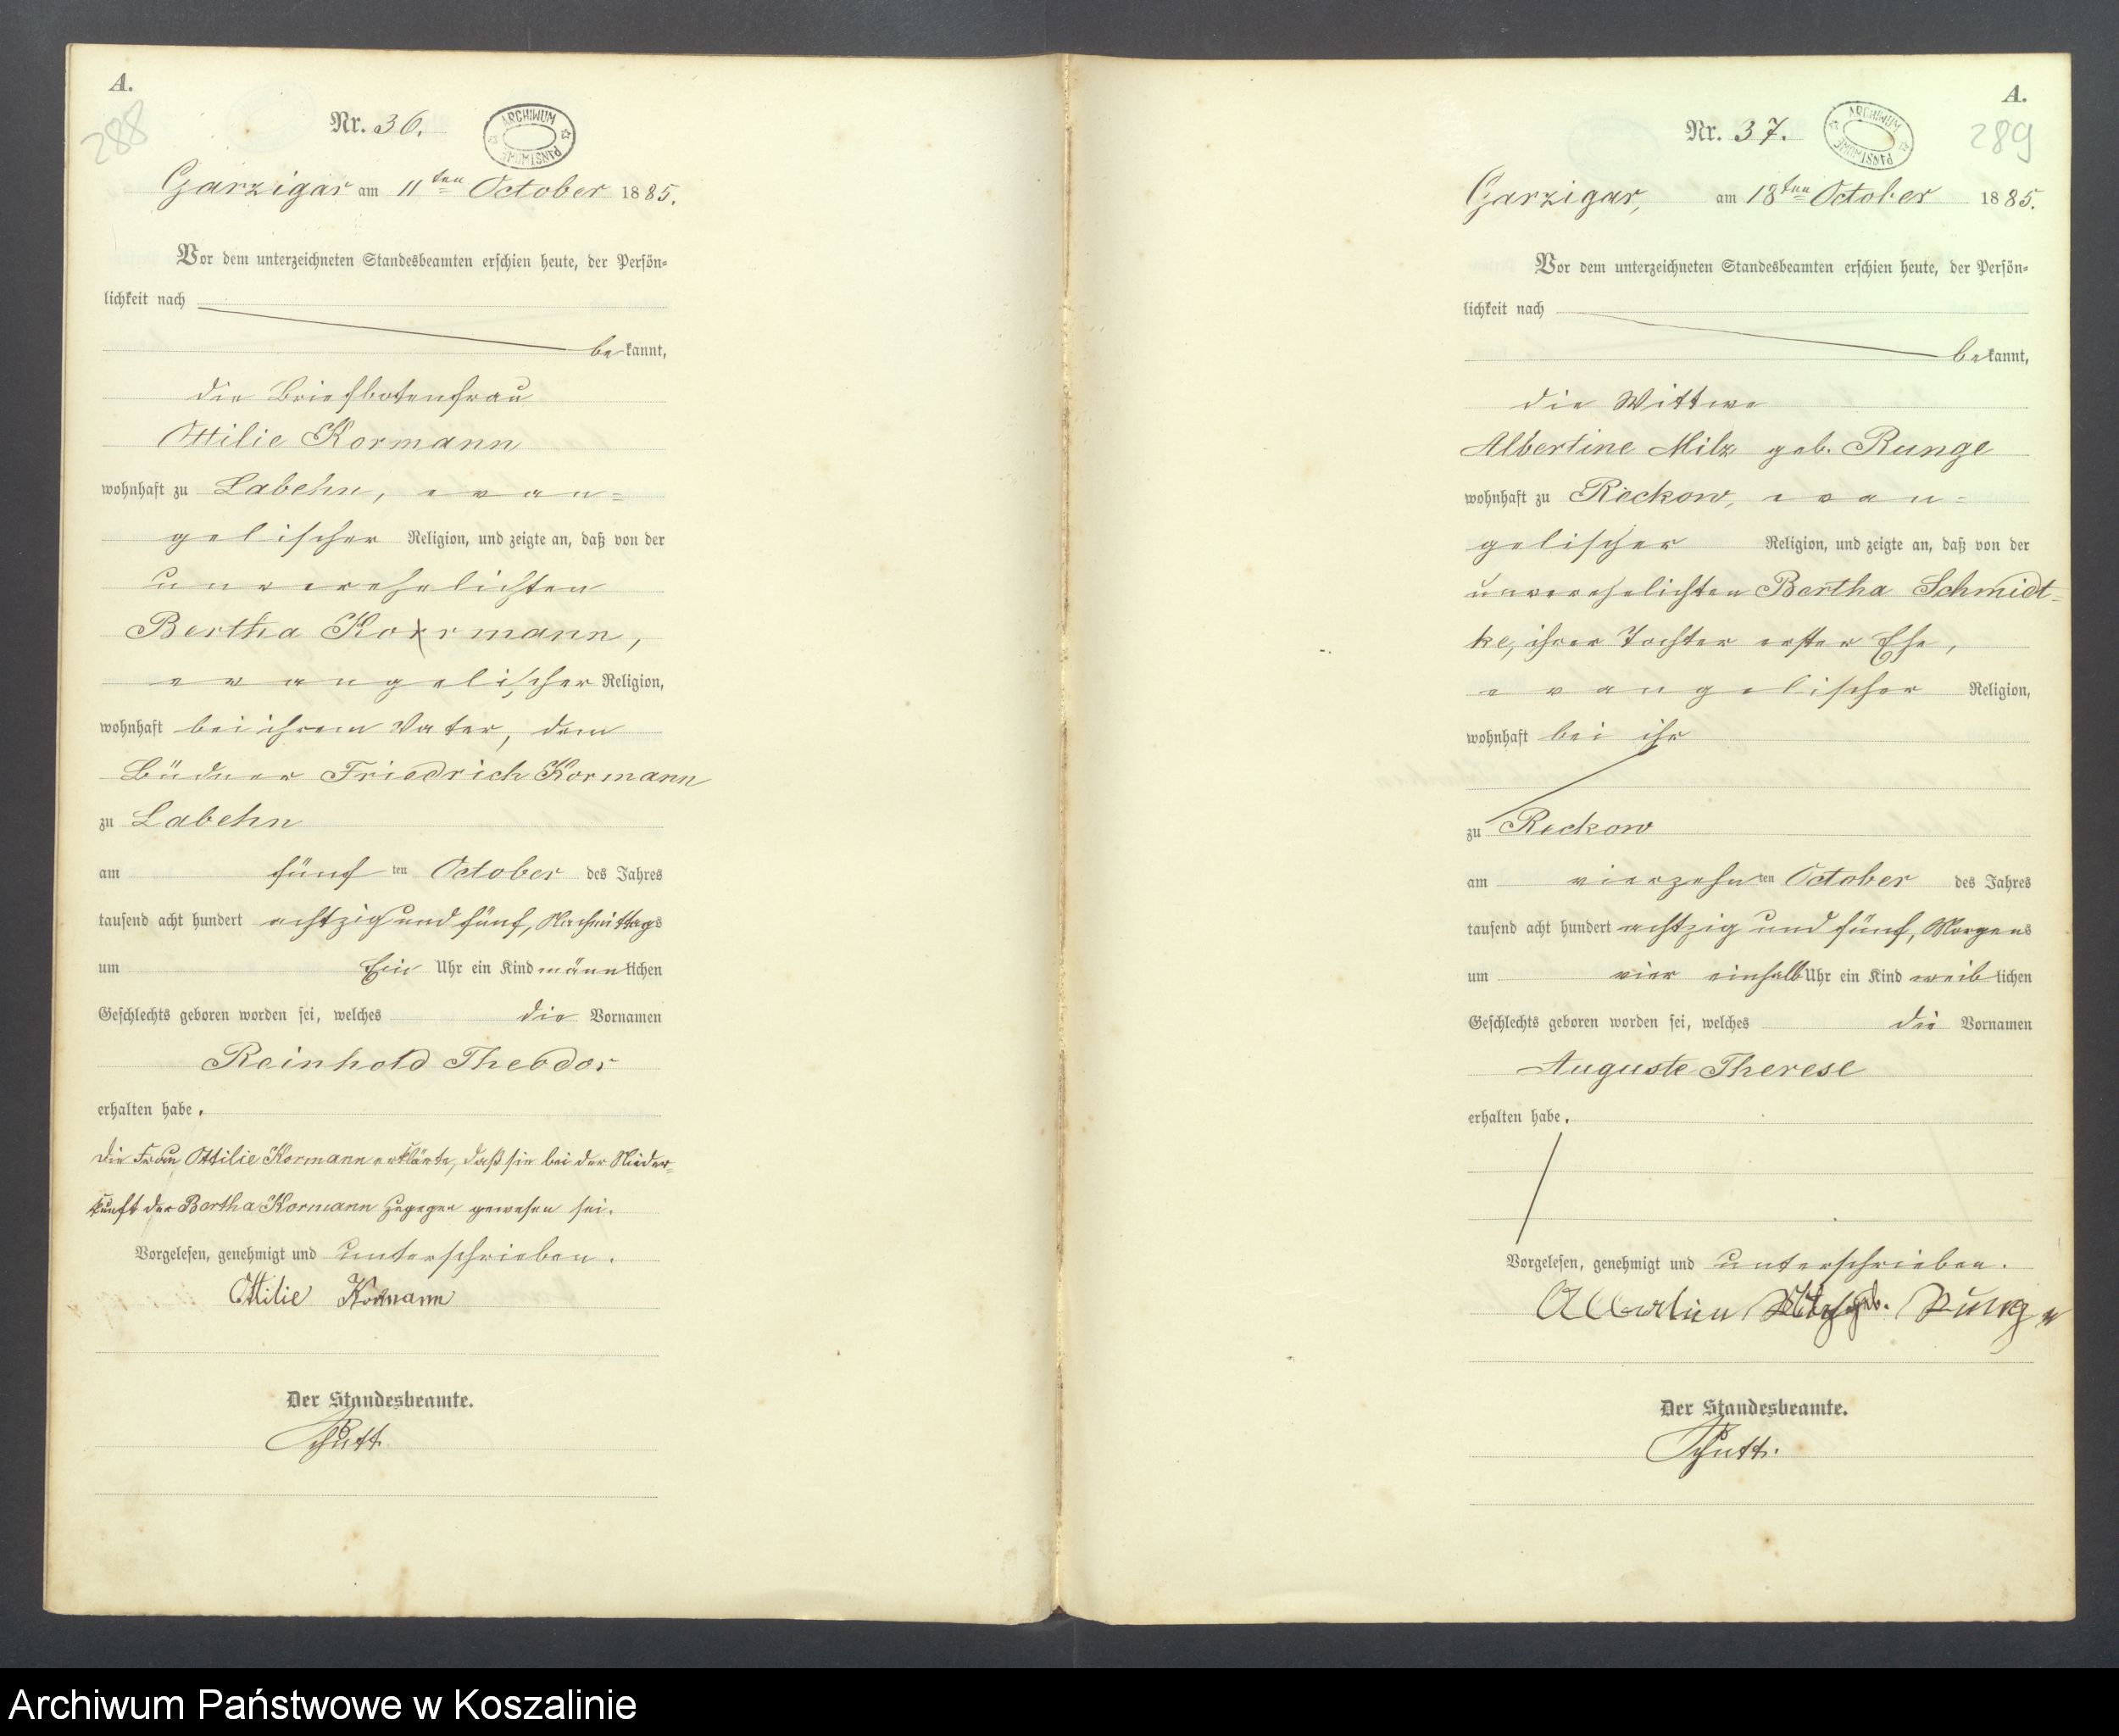 A.
288
Nr. 36.
ARCHIWUM PAŃSTWOWE
Garzigar am 11ten October 1885.
Vor dem unterzeichneten Standesbeamten erschien heute, der Persön=
lichkeit nach
bekannt,
die Briefbotenfrau
Ottilie Kormann
wohnhaft zu Labehn, evan=
gelischer Religion, und zeigte an, daß von der
unverehelichten
Bertha Kormann,
evangelischer Religion,
wohnhaft bei ihrem Vater, dem
Büdner Friedrich Kormann
zu Labehn
am fünften October des Jahres
tausend acht hundert achtzig und fünf, Nachmittags
um Ein Uhr ein Kind männlichen
Geschlechts geboren worden sei, welches die Vornamen
Reinhold Theodor
erhalten habe.
Die Frau Ottilie Kormann erklärte, daß sie bei der Nieder=
kunft der Bertha Kormann zugegen gewesen sei.
Vorgelesen, genehmigt und unterschrieben.
Ottilie Kormann
Der Standesbeamte.
Schütt.
A.
289
Nr. 37.
ARCHIWUM PAŃSTWOWE
Garzigar, am 18ten October 1885.
Vor dem unterzeichneten Standesbeamten erschien heute, der Persön=
lichkeit nach
bekannt,
die Wittwe
Albertine Milz geb. Runge
wohnhaft zu Reckow, evan=
gelischer Religion, und zeigte an, daß von der
unverehelichten Bertha Schmidt=
ke, ihrer Tochter erster Ehe,
evangelischer Religion,
wohnhaft bei ihr
zu Reckow
am vierzehnten October des Jahres
tausend acht hundert achtzig und fünf, Morgens
um vier einhalb Uhr ein Kind weiblichen
Geschlechts geboren worden sei, welches die Vornamen
Auguste Therese
erhalten habe.
Vorgelesen, genehmigt und unterschrieben.
Albertine Milz geb. Runge
Der Standesbeamte.
Schütt.
Archiwum Państwowe w Koszalinie